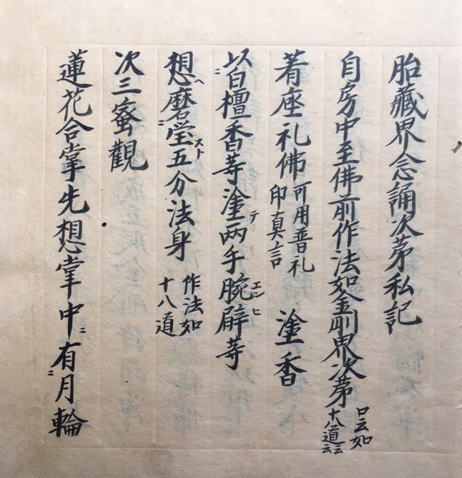 胎藏界念誦次苐私記
自房中至佛前作法如金剛界次苐 口云如十八道云云
着座礼佛 可用普礼印真言 塗香
以白檀香等塗テ兩手腕臂等
想ヘ磨瑩スト五分法身 作法如十八道
次三蜜觀
蓮花合掌先想掌中ニ有月輪